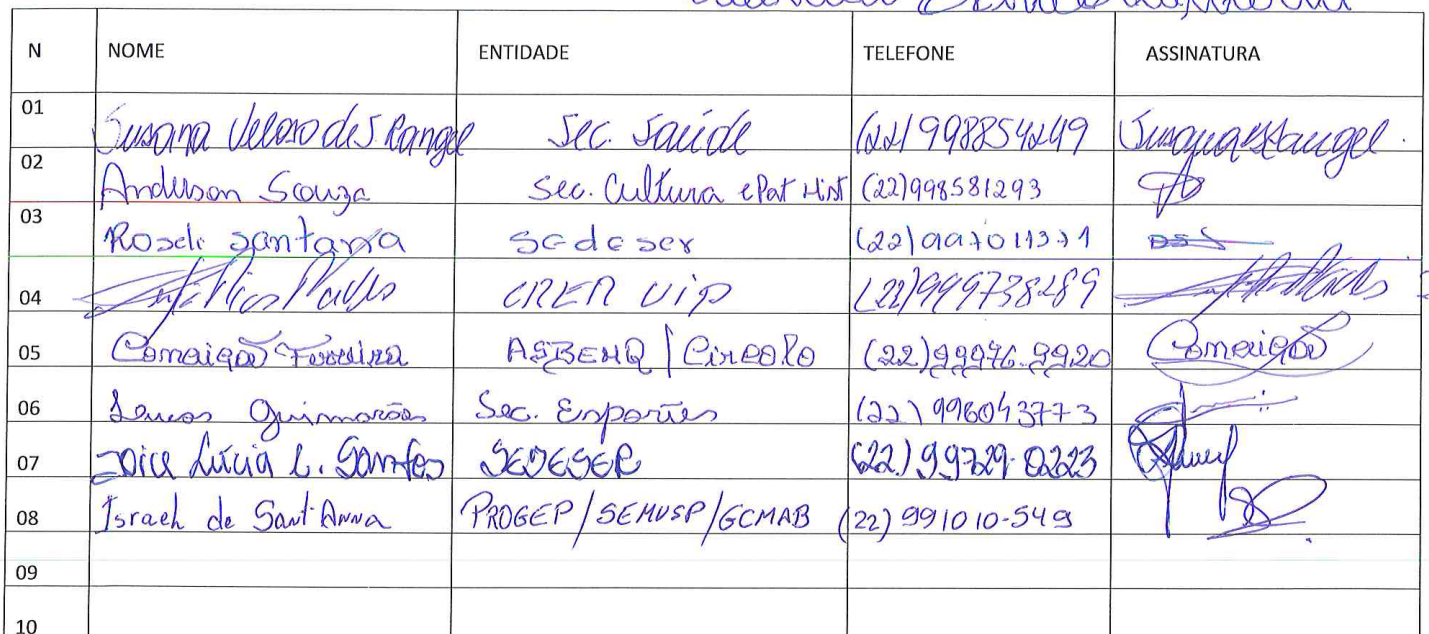 N NOME ENTIDADE TELEFONE ASSINATURA
01 Susana Veloso de S. Rangel Sec. Saúde (22) 998854249
02 Anderson Souza Sec. Cultura e Pat Hist (22)998581293
03 Roseli Santana Sedeser (22)
04 CRER VIP (22)999738289
05 Conceição Ferreira ASBEMQ / Circolo (22)99976-9920 Conceição
06 Lucas Guimarães Sec. Esportes (22) 996043773
07 Lúcia C. Santos SEDESER (22) 99729-0223
08 Israel de Sant'Anna PROGEP/SEMUSP/GCMAB (22) 991010-549
09
10